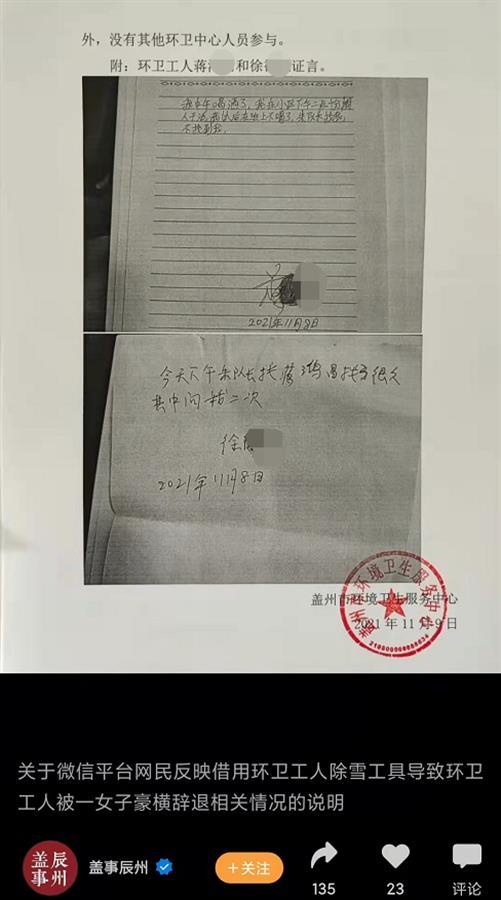 外，没有其他环卫中心人员参与。
附：环卫工人蒋 和徐 证言。
我中午喝酒了，
人干活，
不找到我。
2021年11月8日
今天下午朱队长找蒋 鸿昌找了很久
其中问我二次
徐
2021年11月8日
盖州市环境卫生服务中心
2021年11月9日
关于微信平台网民反映借用环卫工人除雪工具导致环卫
工人被一女子豪横辞退相关情况的说明
盖事
辰州
盖事辰州
+关注
135
23
评论